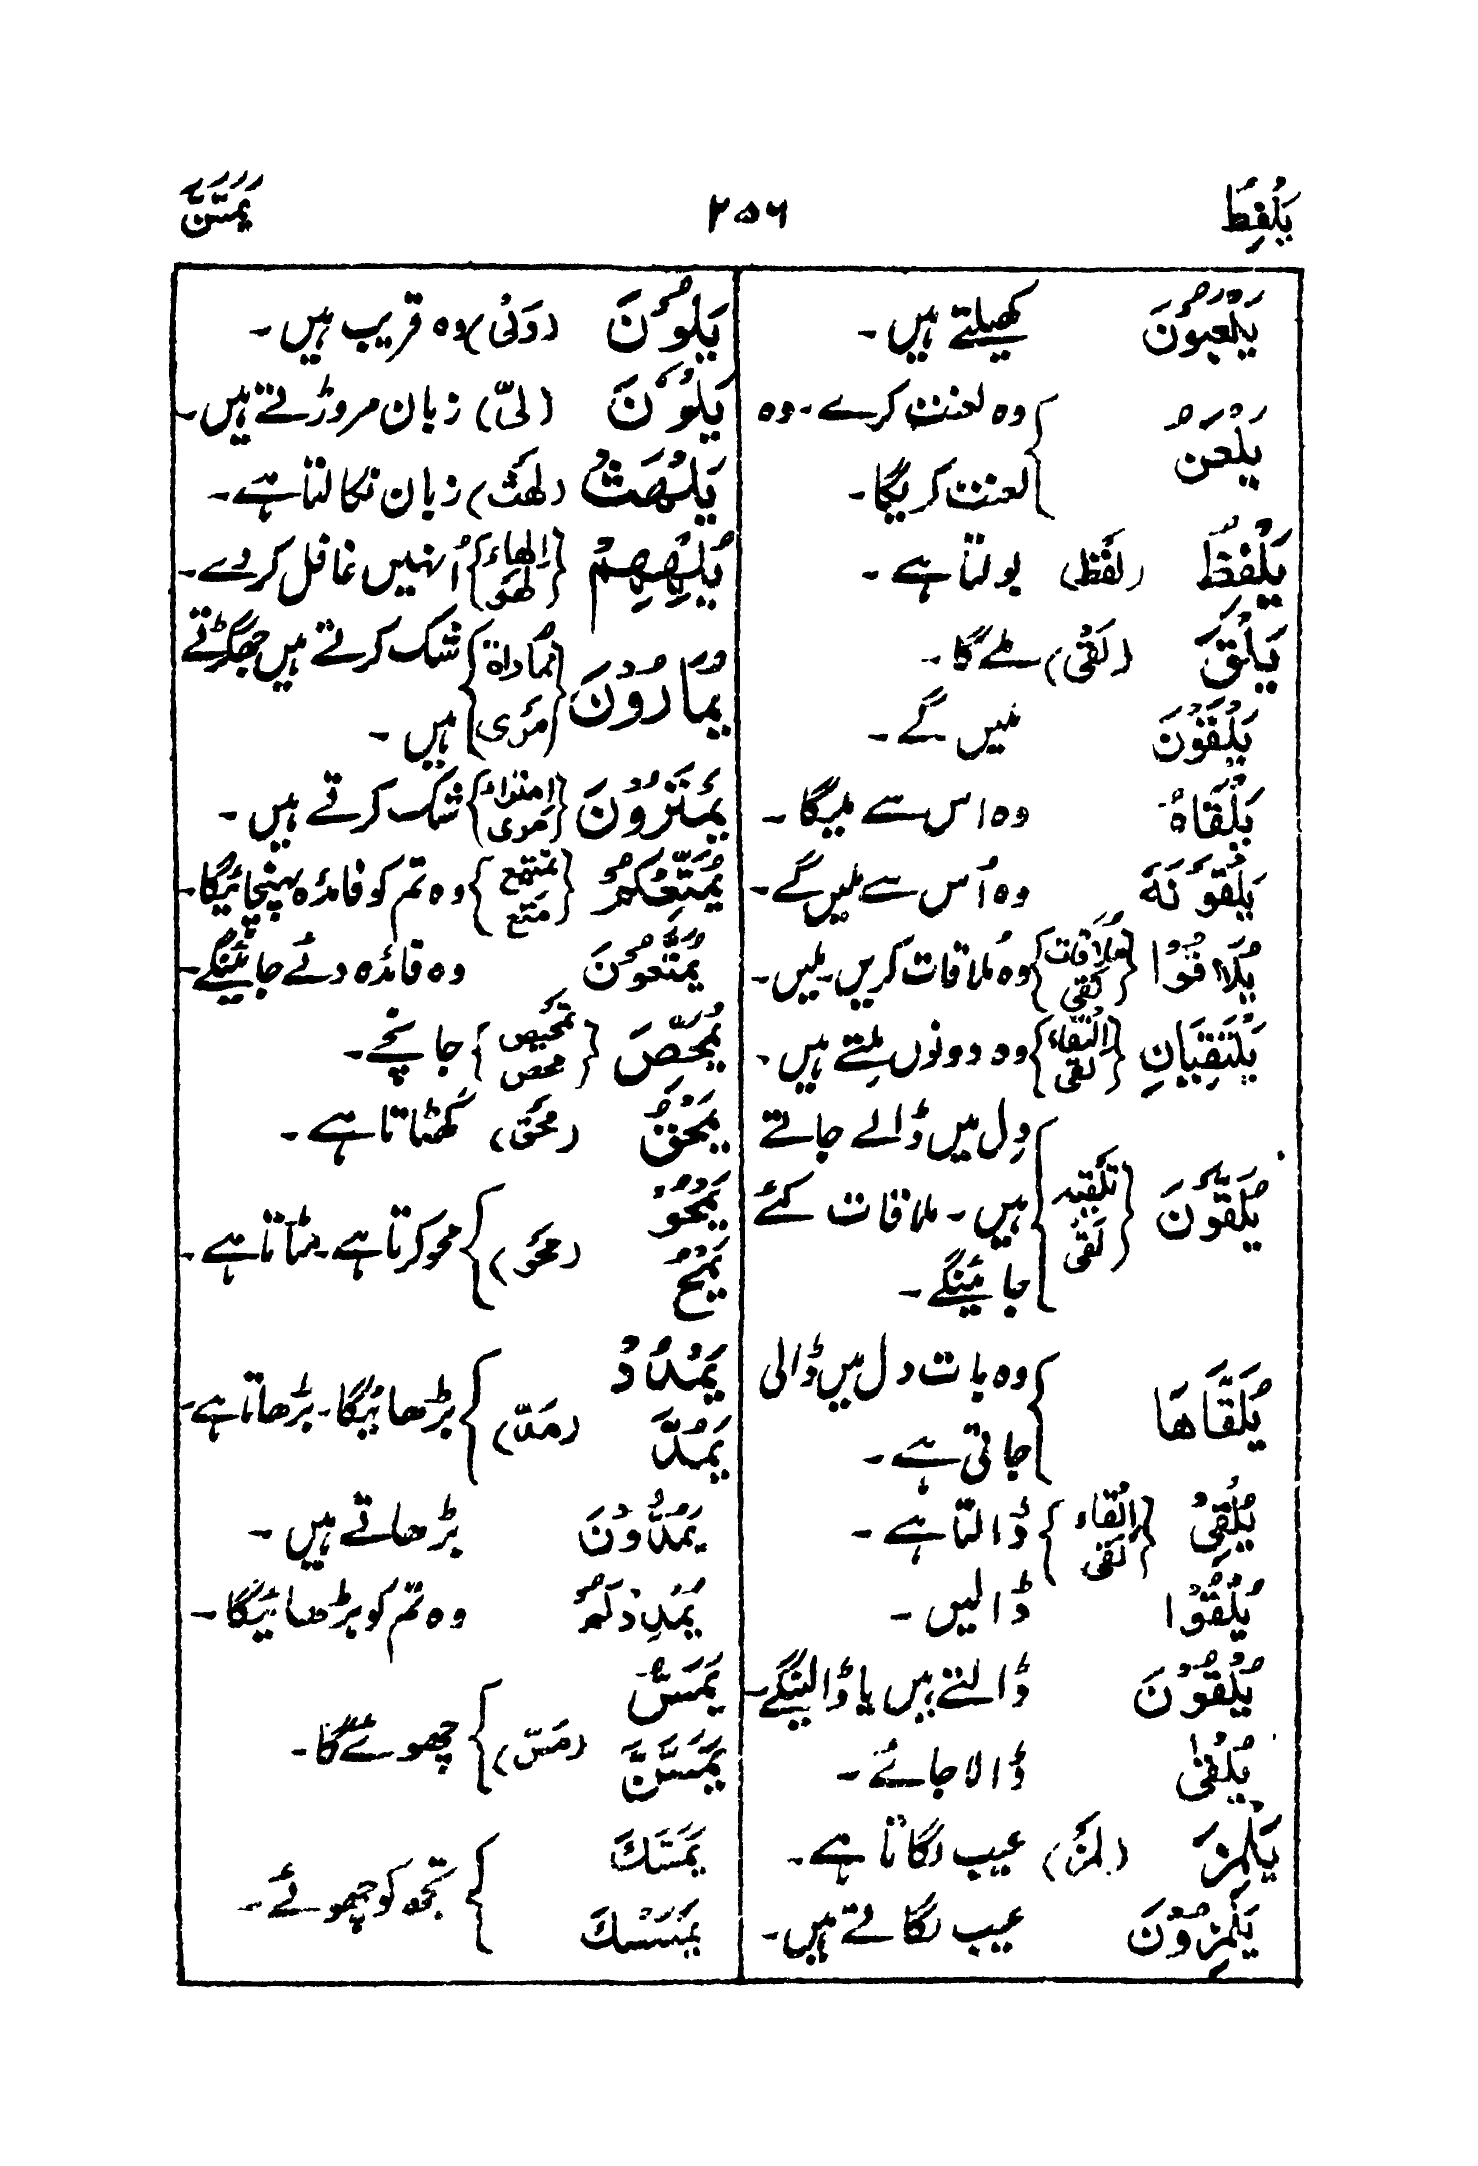 يَلْفِظُ ۲۵۶ يَمَسَّنَّ
يَلْعَبُوْنَ کھیلتے ہیں۔
يَلْعَنُ وہ لعنت کرے۔ وہ
لعنت کریگا۔
يَلْفِظُ (لَفْظ) بولتا ہے۔
يَلْقَ (لَقٰى) ملے گا۔
يَلْقَوْنَ ملیں گے۔
يَلْقَاهُ وہ اس سے ملیگا۔
يَلْقَوْنَهٗ وہ اُس سے ملیں گے۔
يُلَاقُوْا {مُلَاقَات لَقٰى} وہ ملاقات کریں۔ ملیں۔
يَلْتَقِيَانِ {اِلْتِقَاء لقى} وہ دونوں ملتے ہیں۔
يُلَقَّوْنَ {تَلْقِيَه لَقٰى} دِل میں ڈالے جاتے
ہیں۔ ملاقات کئے
جائینگے۔
يُلَقَّاهَا وہ بات دل میں ڈالی
جاتی ہے۔
يُلْقِىْ {اِلْقَاء لقى} ڈالتا ہے۔
يُلْقُوْا ڈالیں۔
يُلْقُوْنَ ڈالتے ہیں یا ڈالینگے۔
يُلْقٰى ڈالا جائے۔
يَلْمِزُ (لَمْز) عیب لگاتا ہے۔
يَلْمِزُوْنَ عیب لگاتے ہیں۔
يَلُوْنَ (وَلٰى) وہ قریب ہیں۔
يَلْوٗنَ (لَىّ) زبان مروڑتے ہیں۔
يَلْهَثْ (لَهْث) زبان نکالتا ہے۔
يُلْهِهِمْ {اِلهَاء لَهْو} اُنہیں غافل کر دے۔
يُمَارُوْنَ {مُمَاراة مَرْى} شک کرتے ہیں جھگڑتے
ہیں۔
يَمْتَرُوْنَ {اِمتراء مَرْى} شک کرتے ہیں۔
يُمَتِّعْكُمْ {تمتيع متع} وہ تم کو فائدہ پہنچائیگا۔
يُمَتَّعُوْنَ وہ فائدہ دئے جائینگے۔
يُمَحِّصَ {تَمحيص محص} جانچے۔
يَمْحَقُ (مَحْق) گھٹاتا ہے۔
يَمْحُوْ
يَمْحُ (مَحْو) محو کرتا ہے۔ مٹاتا ہے۔
يَمْدُدْ
يَمُدُّ (مَدّ) بڑھائیگا۔ بڑھاتا ہے۔
يَمُدُّوْنَ بڑھاتے ہیں۔
يُمْدِدْكُمْ وہ تم کو بڑھائیگا۔
يَمَسُّ
يَمَسَّنَّ (مَسّ) چھوئے گا۔
يَمَسَّكَ
يَمْسَسْكَ تجھ کو چھوئے۔